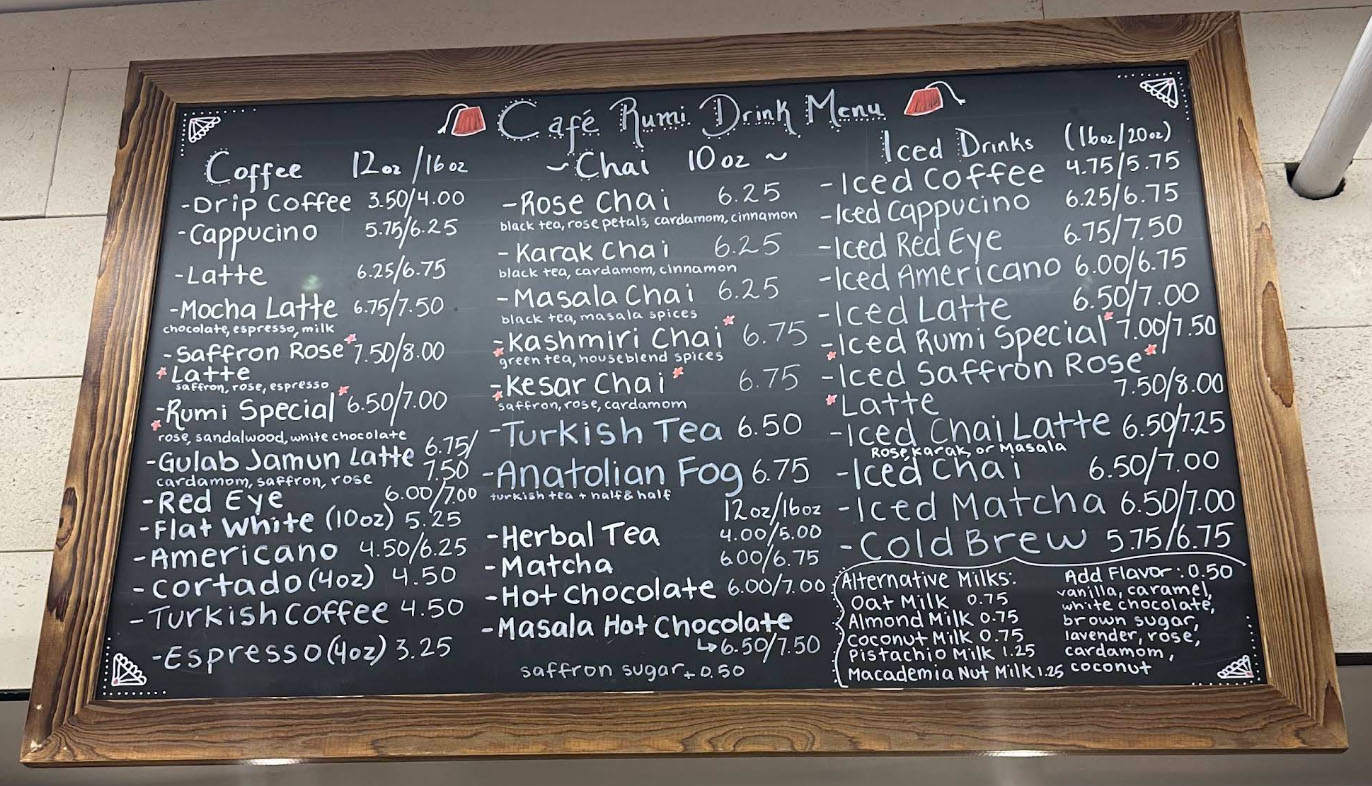 Café Rumi Drink Menu
Coffee 12oz/16oz
-Drip Coffee 3.50/4.00
-Cappucino 5.75/6.25
-Latte 6.25/6.75
-Mocha Latte 6.75/7.50
chocolate, espresso, milk
-Saffron Rose 7.50/8.00
Latte
saffron, rose, espresso
-Rumi Special 6.50/7.00
rose, sandalwood, white chocolate
-Gulab Jamun Latte 6.75/
7.50
cardamom, saffron, rose
-Red Eye 6.00/7.00
-Flat White (10oz) 5.25
-Americano 4.50/6.25
-Cortado (4oz) 4.50
-Turkish Coffee 4.50
-Espresso (4oz) 3.25
~Chai 10oz ~
-Rose Chai 6.25
black tea, rose petals, cardamom, cinnamon
-Karak Chai 6.25
black tea, cardamom, cinnamon
-Masala Chai 6.25
black tea, masala spices
-Kashmiri Chai 6.75
green tea, houseblend spices
-Kesar Chai 6.75
saffron, rose, cardamom
-Turkish Tea 6.50
-Anatolian Fog 6.75
turkish tea + half & half
12oz/16oz
-Herbal Tea 4.00/5.00
-Matcha 6.00/6.75
-Hot Chocolate 6.00/7.00
-Masala Hot Chocolate
↳6.50/7.50
saffron sugar + 0.50
Iced Drinks (16oz/20oz)
-Iced Coffee 4.75/5.75
-Iced Cappucino 6.25/6.75
-Iced Red Eye 6.75/7.50
-Iced Americano 6.00/6.75
-Iced Latte 6.50/7.00
-Iced Rumi Special 7.00/7.50
-Iced Saffron Rose
Latte 7.50/8.00
-Iced Chai Latte 6.50/7.25
Rose, Karak, or Masala
-Iced Chai 6.50/7.00
-Iced Matcha 6.50/7.00
-Cold Brew 5.75/6.75
Alternative Milks:
Oat Milk 0.75
Almond Milk 0.75
Coconut Milk 0.75
Pistachio Milk 1.25
Macademia Nut Milk 1.25
Add Flavor: 0.50
vanilla, caramel,
white chocolate,
brown sugar,
lavender, rose,
cardamom,
coconut